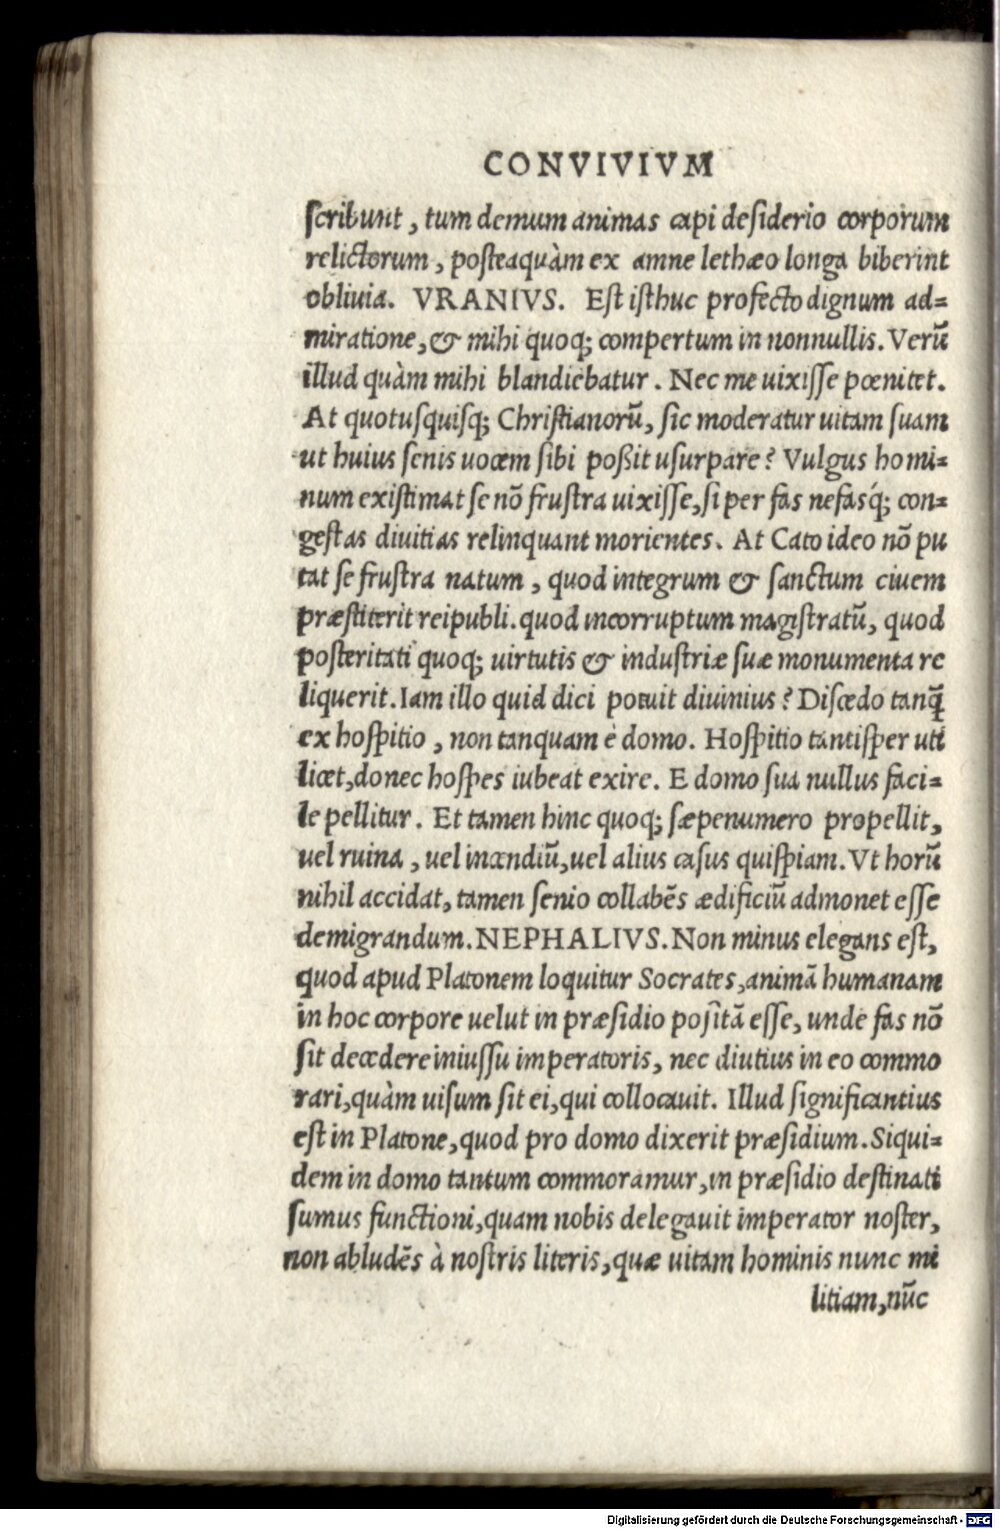 CONVIVIVM
scribunt, tum demum animas capi desiderio corporum
relictorum, posteaquàm ex amne lethæo longa biberint
obliuia. VRANIVS. Est isthuc profecto dignum ad=
miratione, & mihi quoq; compertum in nonnullis. Verũ
illud quàm mihi blandiebatur. Nec me uixisse pœnitet.
At quotusquisq; Christianorũ, sic moderatur uitam suam
ut huius senis uocem sibi poßit usurpare? Vulgus homi=
num existimat se nõ frustra uixisse, si per fas nefasq́; con=
gestas diuitias relinquant morientes. At Cato ideo nõ pu
tat se frustra natum, quod integrum & sanctum ciuem
præstiterit reipubli. quod incorruptum magistratũ, quod
posteritati quoq; uirtutis & industriæ suæ monumenta re
liquerit. Iam illo quid dici potuit diuinius? Discedo tanq̃
ex hospitio, non tanquam è domo. Hospitio tantisper uti
licet, donec hospes iubeat exire. E domo sua nullus faci=
le pellitur. Et tamen hinc quoq; sæpenumero propellit,
uel ruina, uel incendiũ, uel alius casus quispiam. Vt horũ
nihil accidat, tamen senio collabẽs ædificiũ admonet esse
demigrandum. NEPHALIVS. Non minus elegans est,
quod apud Platonem loquitur Socrates, animã humanam
in hoc corpore uelut in præsidio positã esse, unde fas nõ
sit decedere iniussu imperatoris, nec diutius in eo commo
rari, quàm uisum sit ei, qui collocauit. Illud significantius
est in Platone, quod pro domo dixerit præsidium. Siqui=
dem in domo tantum commoramur, in præsidio destinati
sumus functioni, quam nobis delegauit imperator noster,
non abludẽs à nostris literis, quæ uitam hominis nunc mi
litiam, nũc
Digitalisierung gefördert durch die Deutsche Forschungsgemeinschaft - DFG